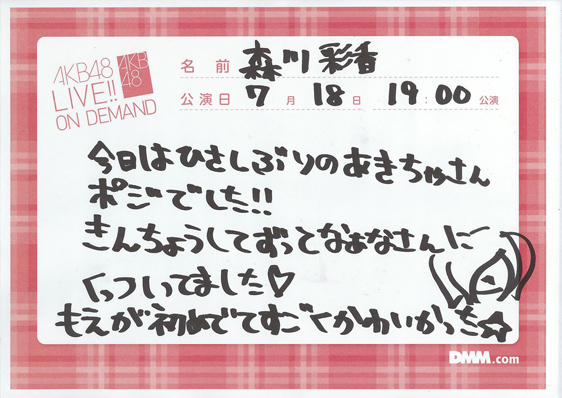 AKB48
LIVE!!
ON DEMAND
AKB
48
名 前 森川彩香
公演日 7月 18日 19:00 公演
今日はひさしぶりのあきちゃさん
ポジでした!!
きんちょうしてずってなぁなさんに
くっついてました♡
もえが初めでてすごくかわいかった☆
DMM.com